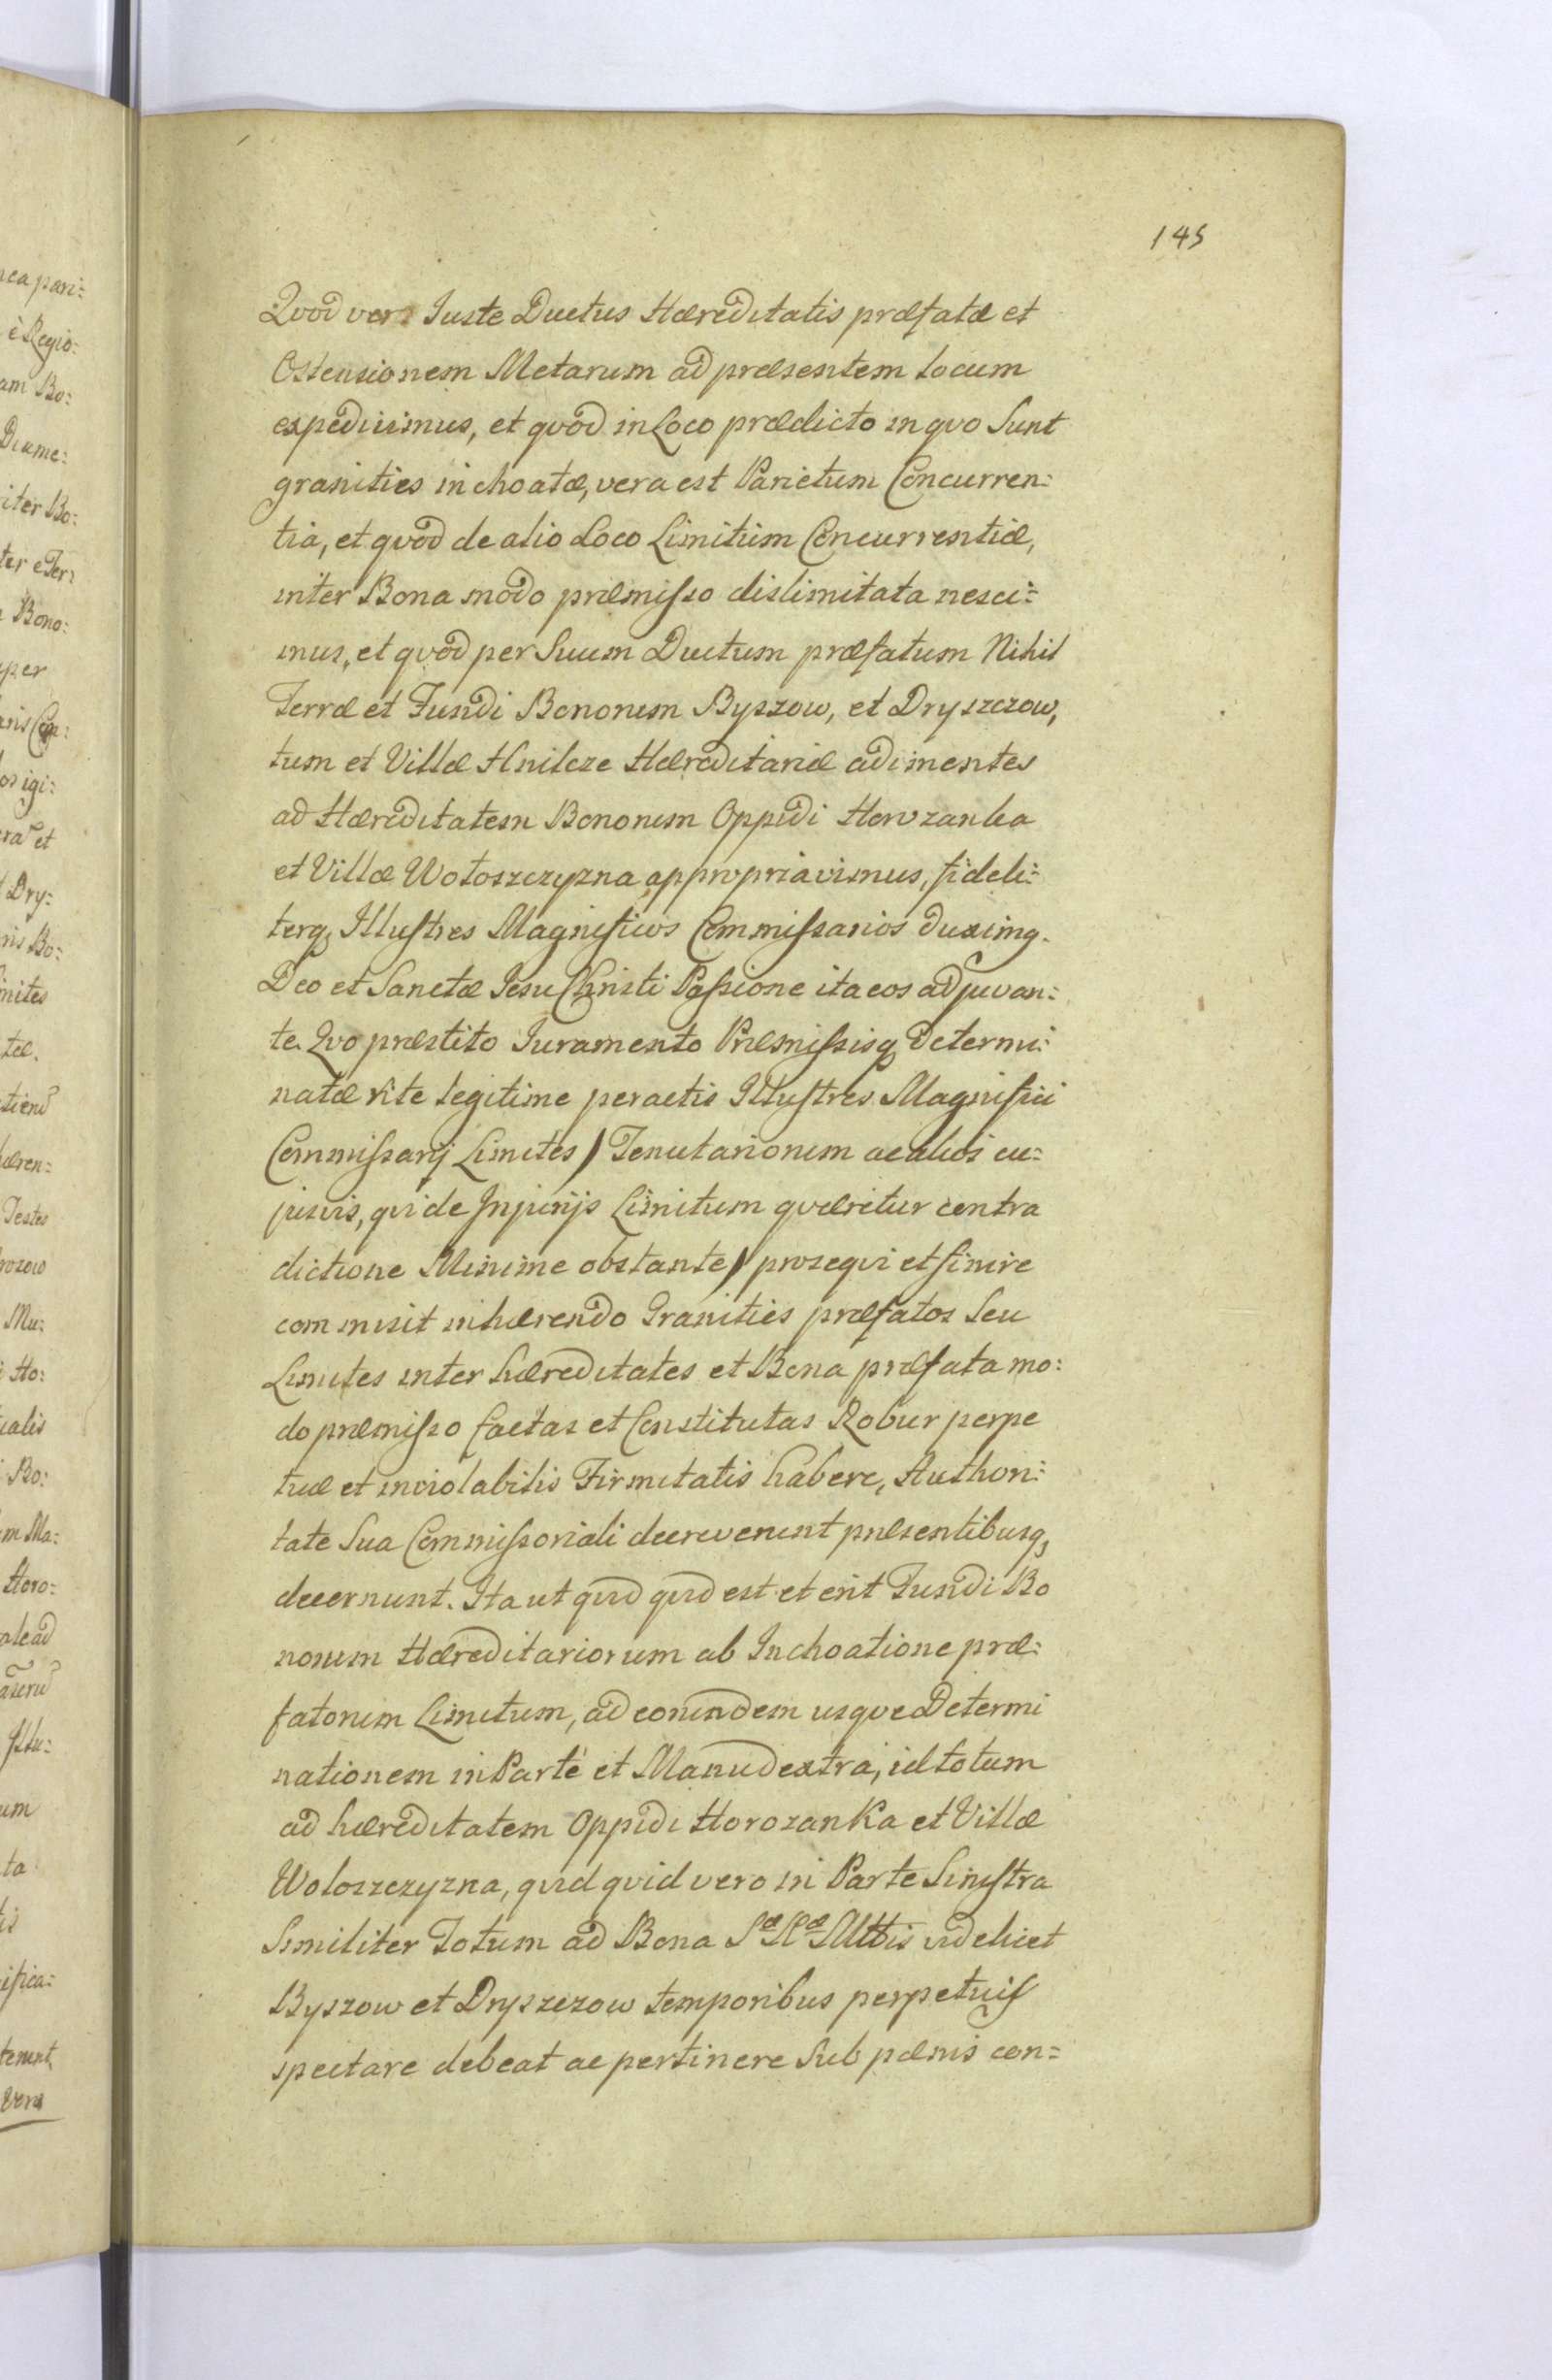 145
Qvod vero Iuste Ductus Hæreditatis præfatæ et
Ostensionem Metarum ad præsentem Locum
expedivimus, et qvod in Loco prædicto in qvo Sunt
granities inchoatæ, vera est Parietum Concurren:
tia, et qvod de alio Loco Limitum Concurrentiæ,
inter Bona modo præmisso dislimitata nesci:
mus, et qvod per Suum Ductum præfatum Nihil
Terræ et Fundi Bonorum Byszow, et Dryszczow,
tum et Villæ Hnilcze Hæreditariæ adimentes
ad Hæreditatem Bonorum Oppidi Horozanka
et Villæ Wołoszczyzna appropriavimus, fideli:
terq, Illustres Magnificos Commissarios duximq.
Deo et Sanctæ Jesu Christi Passione ita eos adjuvan:
te. Qvo præstito Iuramento Præmissisq, determi:
natæ rite legitime peractis Illustres Magnifici
Commissarij Limites / Tenutariorum ac alios cu:
jusvis, qvi de Injurijs Limitum qværitur contra
dictione Minime obstante / prosequi et finire
commisit inhærendo Granities præfatos Seu
Limites inter hæreditates et Bona præfata mo:
do præmisso factas et Constitutas Robur perpe
tuæ et inviolabilis Firmitatis habere, Authori:
tate Sua Commissoriali decreverunt præsentibusq,
decernunt. Ita ut qvid qvid est et erit Fundi Bo
norum Hæreditariorum ab Inchoatione præ:
fatorum Limitum, ad eorundem usqve Determi
nationem in Parte et Manu dextra, id totum
ad hæreditatem Oppidi Horozanka et Villæ
Woloszczyzna, qvid qvid vero in Parte Sinistra
Similiter Totum ad Bona Sæ Ræ Mttis videlicet
Byszow et Dryszczow temporibus perpetuis
spectare debeat ac pertinere Sub pænis con=